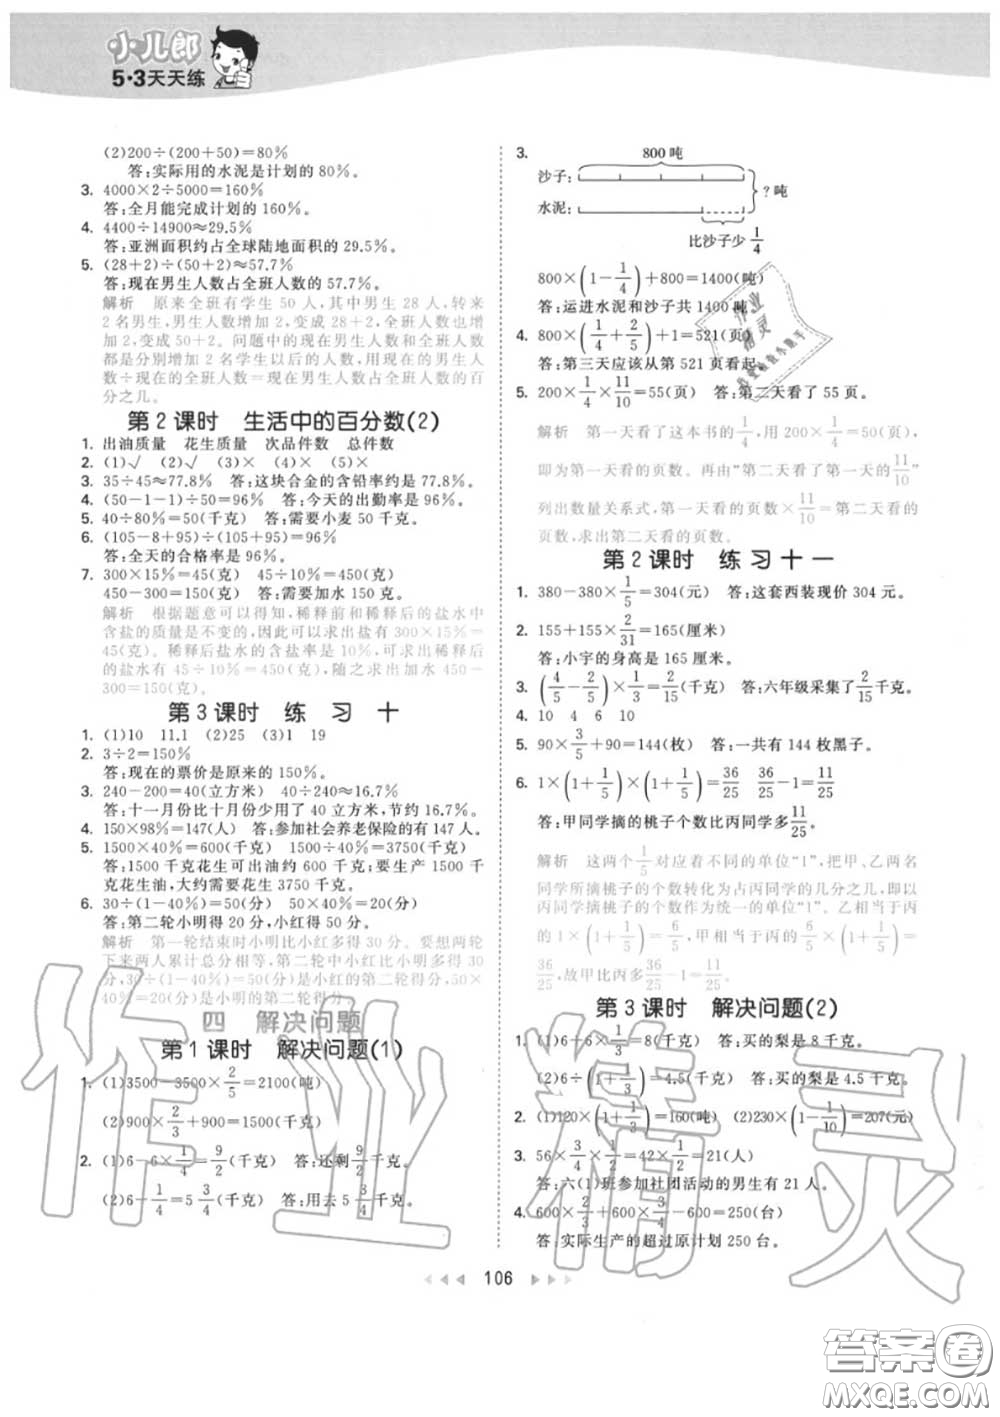 小儿郎
5·3天天练
(2)200÷(200+50)=80%
答:实际用的水泥是计划的 80%。
3. 4000×2÷5000=160%
答:全月能完成计划的 160%。
4. 4400÷14900≈29.5%
答:亚洲面积约占全球陆地面积的 29.5%。
5. (28+2)÷(50+2)≈57.7%
答:现在男生人数占全班人数的 57.7%。
解析 原来全班有学生 50 人,其中男生 28 人,转来
2 名男生,男生人数增加 2,变成 28+2,全班人数也增
加 2,变成 50+2。问题中的现在男生人数和全班人数
都是分别增加 2 名学生以后的人数,用现在的男生人
数÷现在的全班人数=现在男生人数占全班人数的百
分之几。
第 2 课时 生活中的百分数(2)
1. 出油质量 花生质量 次品件数 总件数
2. (1)√ (2)√ (3)× (4)× (5)×
3. 35÷45≈77.8% 答:这块合金的含铅率约是 77.8%。
4. (50-1-1)÷50=96% 答:今天的出勤率是 96%。
5. 40÷80%=50(千克) 答:需要小麦 50 千克。
6. (105-8+95)÷(105+95)=96%
答:全天的合格率是 96%。
7. 300×15%=45(克) 45÷10%=450(克)
450-300=150(克) 答:需要加水 150 克。
解析 根据题意可以得知,稀释前和稀释后的盐水中
含盐的质量是不变的,因此可以求出盐有 300×15%=
45(克)。稀释后盐水的含盐率是 10%,可求出稀释后
的盐水有 45÷10%=450(克),随之求出加水 450-
300=150(克)。
第 3 课时 练 习 十
1. (1)10 11.1 (2)25 (3)1 19
2. 3÷2=150%
答:现在的票价是原来的 150%。
3. 240-200=40(立方米) 40÷240≈16.7%
答:十一月份比十月份少用了 40 立方米,节约 16.7%。
4. 150×98%=147(人) 答:参加社会养老保险的有 147 人。
5. 1500×40%=600(千克) 1500÷40%=3750(千克)
答:1500 千克花生可出油约 600 千克;要生产 1500 千
克花生油,大约需要花生 3750 千克。
6. 30÷(1-40%)=50(分) 50×40%=20(分)
答:第二轮小明得 20 分,小红得 50 分。
解析 第一轮结束时小明比小红多得 30 分。要想两轮
下来两人累计总分相等,第二轮中小明比小红少得 30
分,30÷(1-40%)=50(分)是小红的第二轮得分,50×
40%=20(分)是小明的第二轮得分。
四 解决问题
第 1 课时 解决问题(1)
1. (1)3500-3500×2/5=2100(吨)
(2)900×2/3+900=1500(千克)
2. (1)6-6×1/4=9/2(千克) 答:还剩9/2千克。
(2)6-1/4=5 3/4(千克) 答:用去 5 3/4千克。
3.
800 吨
沙子:
? 吨
水泥:
比沙子少 1/4
800×(1-1/4)+800=1400(吨)
答:运进水泥和沙子共 1400 吨。
4. 800×(1/4+2/5)+1=521(页)
答:第三天应该从第 521 页看起。
5. 200×1/4×11/10=55(页) 答:第二天看了 55 页。
解析 第一天看了这本书的1/4,用 200×1/4=50(页),
即为第一天看的页数。再由“第二天看了第一天的11/10”
列出数量关系式,第一天看的页数×11/10=第二天看的
页数,求出第二天看的页数。
第 2 课时 练 习 十 一
1. 380-380×1/5=304(元) 答:这套西装现价 304 元。
2. 155+155×2/31=165(厘米)
答:小宇的身高是 165 厘米。
3. (4/5-2/5)×1/3=2/15(千克) 答:六年级采集了2/15千克。
4. 10 4 6 10
5. 90×3/5+90=144(枚) 答:一共有 144 枚黑子。
6. 1×(1+1/5)×(1+1/5)=36/25 36/25-1=11/25
答:甲同学摘的桃子个数比丙同学多11/25。
解析 这两个1/5对应着不同的单位“1”,把甲、乙两名
同学所摘桃子的个数转化为占丙同学的几分之几,即以
丙同学摘桃子的个数作为统一的单位“1”。乙相当于丙
的1×(1+1/5)=6/5,甲相当于丙的6/5×(1+1/5)=
36/25,故甲比丙多36/25-1=11/25。
第 3 课时 解决问题(2)
1. (1)6+6×1/3=8(千克) 答:买的梨是 8 千克。
(2)6÷(1+1/3)=4.5(千克) 答:买的梨是 4.5 千克。
2. (1)120×(1+1/3)=160(吨) (2)230×(1-1/10)=207(元)
3. 56×3/4×1/2=42×1/2=21(人)
答:六(1)班参加社团活动的男生有 21 人。
4. 600×2/3+600×3/4-600=250(台)
答:实际生产的超过原计划 250 台。
106
作业精灵
作业
精灵
答案圈
MXQE.COM